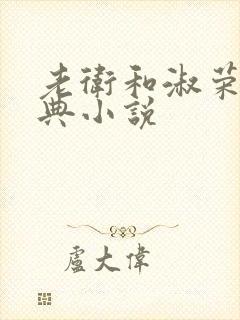 老衛和淑荣
典小說
盧大偉